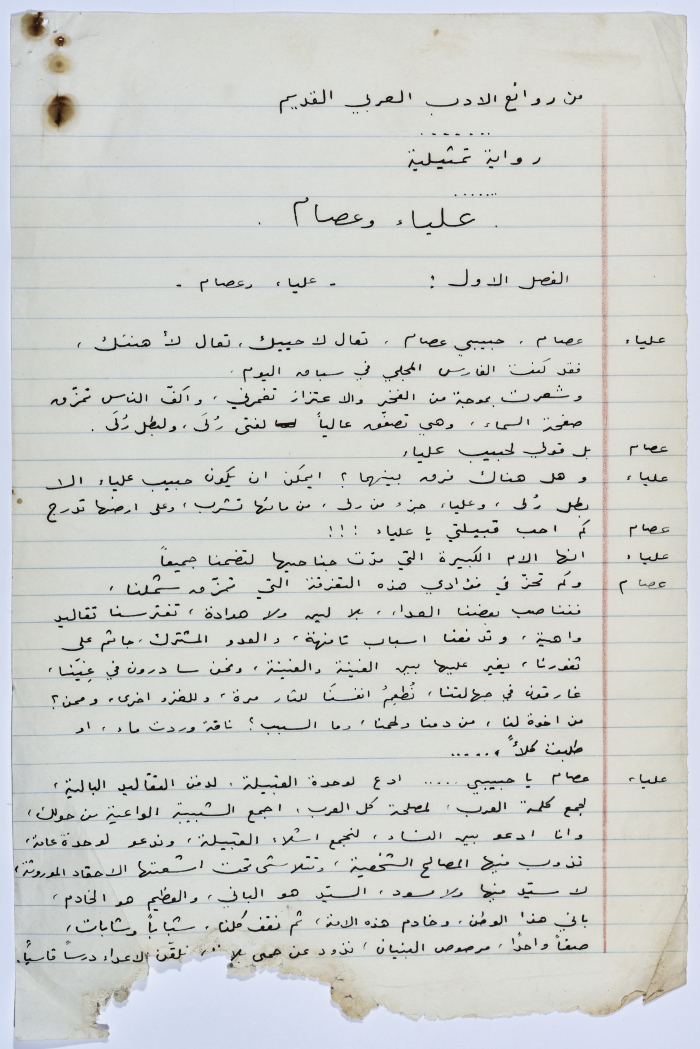 من روائع الادب العربي القديم
.......
رواية تمثيلية
......
علياء وعصام .
الفصل الاول : - علياء وعصام -
علياء عصام ، حبيبي عصام ، تعال لاحييك ، تعال لأهنئك ،
فقد كنت الفارس المجلي في سباق اليوم .
وشعرت بموجة من الفخر والاعتزاز تغمرني ، واكفّ الناس تمزّق
صفحة السماء ، وهي تصفّق عالياً لفتى رُلَى ، ولبطل رُلَى .
عصام بل قولي لحبيب علياء
علياء و هل هناك فرق بينهما ؟ ايمكن ان يكون حبيب علياء الا
بطل رُلى ، وعلياء جزء من رلى ، من مائها تشرب ، وعلى ارضها تدرج
عصام كم احب قبيلتي يا علياء !!!
علياء انها الام الكبيرة التي مدّت جناحيها لتضمنا جميعاً
عصام وكم تحزّ في فؤادي هذه التفرقة التي تمزّق شملنا ،
فنناصب بعضنا العداء ، بلا لين ولا هوادة ، تفترسنا تقاليد
واهية ، وتدفعنا اسباب تافهة ، والعدو المشترك جاثم على
ثغورنا ، يغير عليها بين الفينة والفينة ، ونحن سادرون في غيّنا ،
غارقون في جهالتنا ، نُطعِمُ انفسنَا للثأر مرة ، وللغزو اخرى ، وممن ؟
من اخوة لنا ، من دمنا ولحمنا ، وما السبب ؟ ناقة وردت ماء ، او
طلبت كلأً ، .....
علياء عصام يا حبيبي ..... ادع لوحدة القبيلة ، لدفن التقاليد البالية ،
لجمع كلمة العرب ، لمصلحة كل العرب ، اجمع الشبيبة الواعية من حولك ،
وانا ادعو بين النساء ، لنجمع اشلاء القبيلة ، وندعو لوحدة عامة ،
تذوب فيها المصالح الشخصية ، وتتلاشى تحت اشعتها الاحقاد الموروثة ،
لا سيّد فيها ولا مسود ، السيّد هو الباني ، والعظيم هو الخادم ،
باني هذا الوطن ، وخادم هذه الامة ، ثم نقف كلنا ، شباباً وشابات ،
صفاً واحدًا ، مرصوص البنيان ، نذود عن حمى ، نلقّن الاعداء درساً قاسياً .